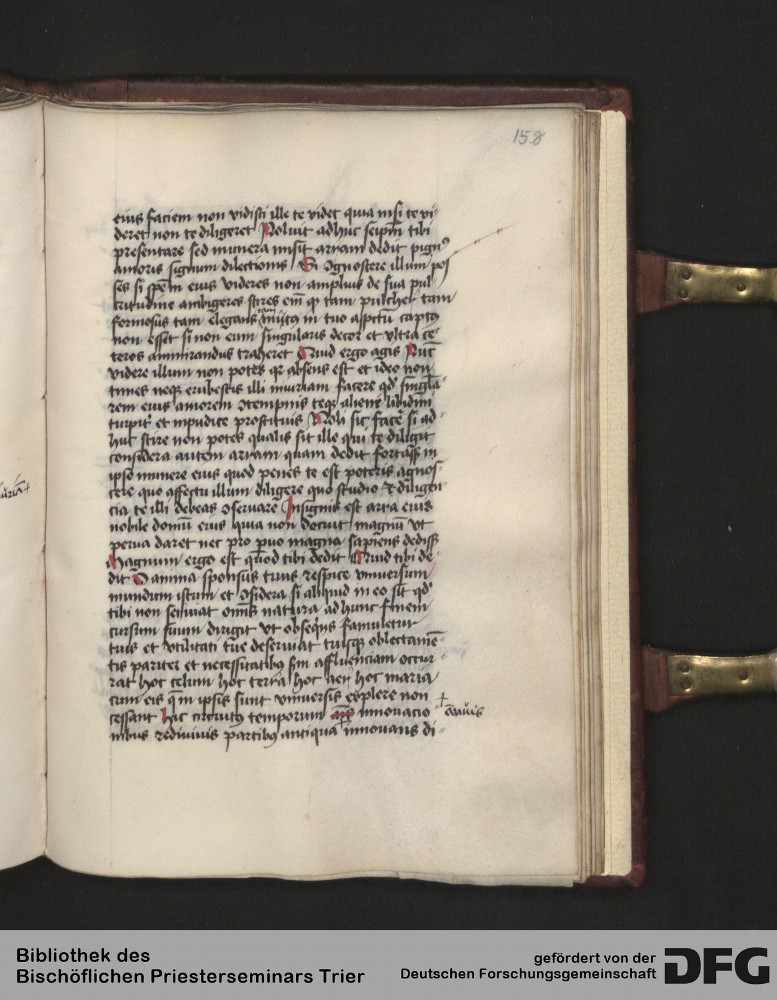 158
eius faciem non vidisti ille te videt quia nisi te vi-
deret non te diligeret Noluit adhuc seipm̄ tibi
presentare sed munera misit arram dedit pignꝰ
amoris signum dilectionis Si ꝯgnoscere illum pos
ses si spēm eius videres non amplius de sua pul
critudine ambigeres scires em̄ ꝙ tam pulcher tam
formosus tam elegans tam in tuo aspctū captꝰ
non esset si non eum singularis decor et vltra ce
teros ammirandus traheret Quid ergo agis Nūc
videre illum non potes qr absens est et ideo non
times neqꝫ erubescis illi iniuriam facere qd singla
rem eius amorem ꝯtempnis teqꝫ aliene libidini
turpit᷑ et inpudice prostituis Noli sic facē si ad
huc scire non potes qualis sit ille qui te diligit
considera autem arram quam dedit fortass̄ in
ipso munere eius quod penes te est poteris agnos
cere quo affectu illum diligere quo studio ⁊ diligen
cia te illi debeas ꝯseruare Insignis est arra eius
nobile donū eius quia non decuit magnū vt
perua daret nec pro puo magna sapiens dediss̄
Magnum ergo est quod tibi dedit Quid tibi de
dit O anima sponsus tuus respice vniuersum
mundum istum et ꝯsidera si aliquid in eo sit qd
tibi non seruiat omīs natura ad hunc finem
cursum suum dirigit vt obseqīs famuletur
tuis et vtilitati tue deseruiat tuisqꝫ oblectamē
tis pariter et necessitatibꝫ scm̄ affluenciam occur
rat hoc celum hoc terra hoc aer hoc maria
cum eis q̄ in ipsis sunt vniuersis explere non
cessant hic circuitꝰ temporum innouacio
+ añuis
nibus rediuiuis partibꝫ antiqua innouans di
Bibliothek des
Bischöflichen Priesterseminars Trier
gefördert von der
Deutschen Forschungsgemeinschaft
DFG